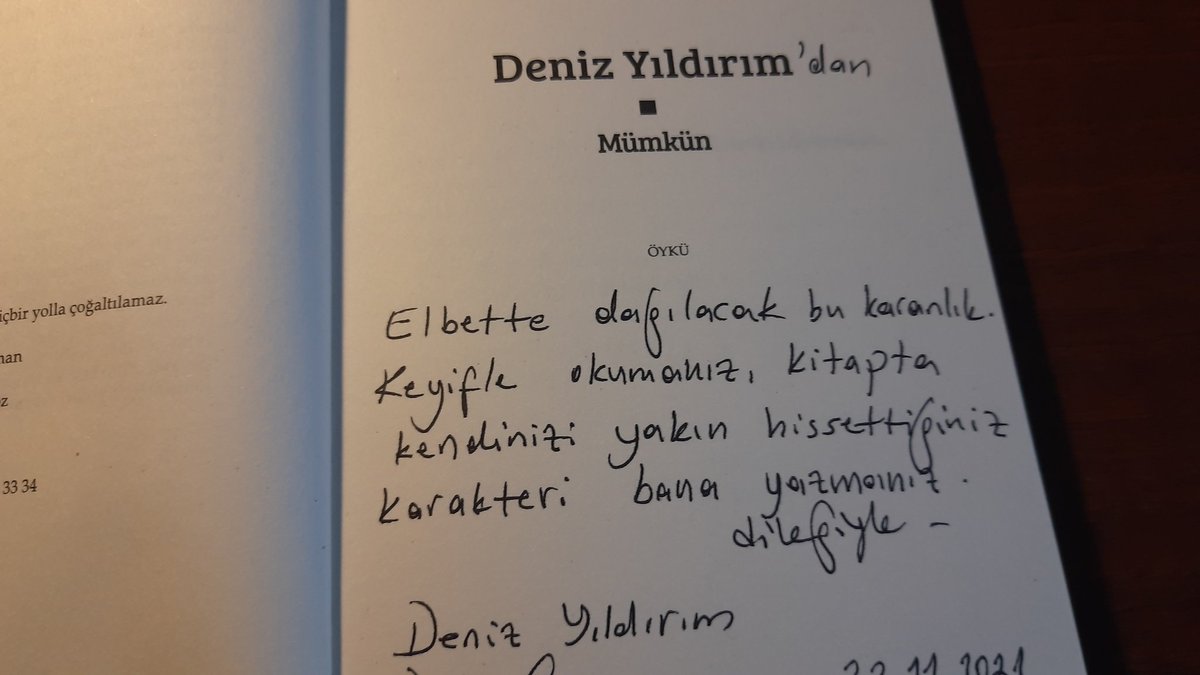 içbir yolla çoğaltılamaz.
33 34
Deniz Yıldırım'dan
Mümkün
ÖYKÜ
Elbette dağılacak bu karanlık.
Keyifle okumanız, kitapta
kendinizi yakın hissettiğiniz
karakteri bana yazmanız
dileğiyle –
Deniz Yıldırım